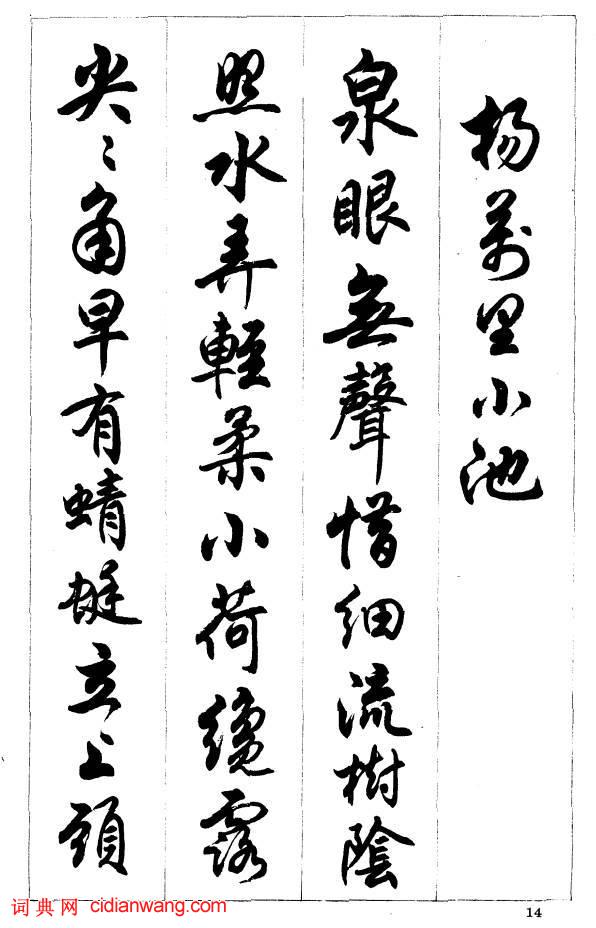 楊萬里小池
泉眼無聲惜細流樹陰
照水弄輕柔小荷纔露
尖〻角早有蜻蜓立上頭
词典网 cidianwang.com
14